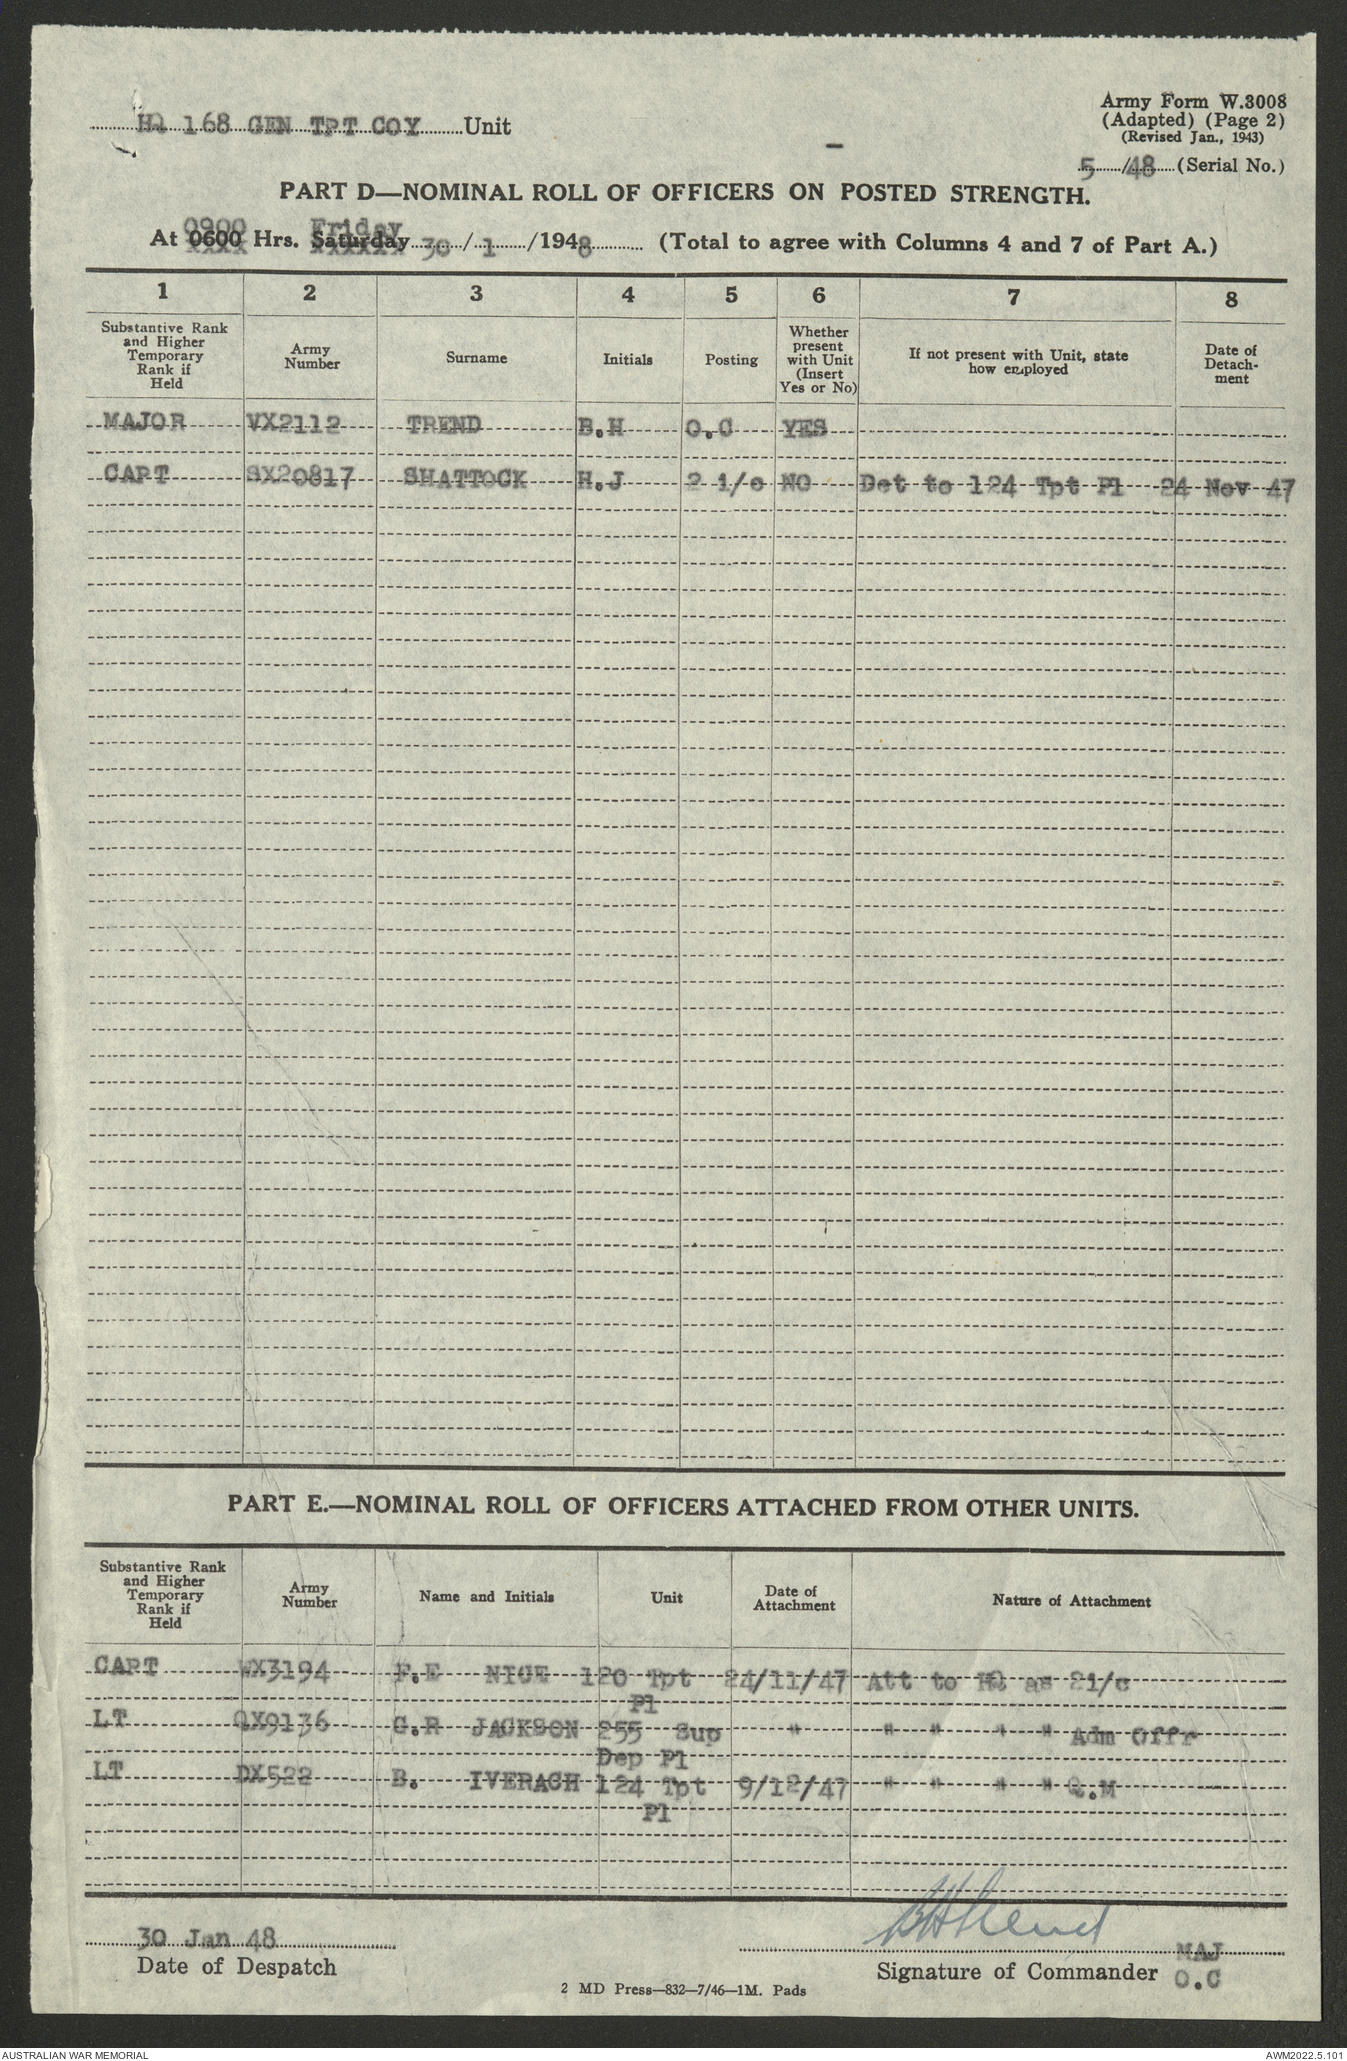 HQ 168 GEN TPT COY Unit
Army Form W.3008
(Adapted) (Page 2)
(Revised Jan., 1943)
5/48 (Serial No.)
PART D—NOMINAL ROLL OF OFFICERS ON POSTED STRENGTH.
0900 Friday
At 0600 Hrs. Saturday 30/1/1948 (Total to agree with Columns 4 and 7 of Part A.)
xxxx xxxxxx
1 2 3 4 5 6 7 8
Substantive Rank and Higher Temporary Rank if Held
Army Number
Surname
Initials
Posting
Whether present with Unit (Insert Yes or No)
If not present with Unit, state how employed
Date of Detach-ment
MAJOR VX2112 TREND B.H O.C YES
CAPT SX20817 SHATTOCK H.J 2 i/c NO Det to 124 Tpt Pl 24 Nov 47
PART E.—NOMINAL ROLL OF OFFICERS ATTACHED FROM OTHER UNITS.
Substantive Rank and Higher Temporary Rank if Held
Army Number
Name and Initials
Unit
Date of Attachment
Nature of Attachment
CAPT WX3194 F.E NICE 120 Tpt 24/11/47 Att to HQ as 2i/c
Pl
LT QX9136 G.R JACKSON 255 Sup " " " " " Adm Offr
Dep Pl
LT DX522 B. IVERACH 124 Tpt 9/12/47 " " " " Q.M
Pl
30 Jan 48
Date of Despatch
BHTrend
MAJ
Signature of Commander O.C
2 MD Press—832—7/46—1M. Pads
AUSTRALIAN WAR MEMORIAL
AWM2022.5.101